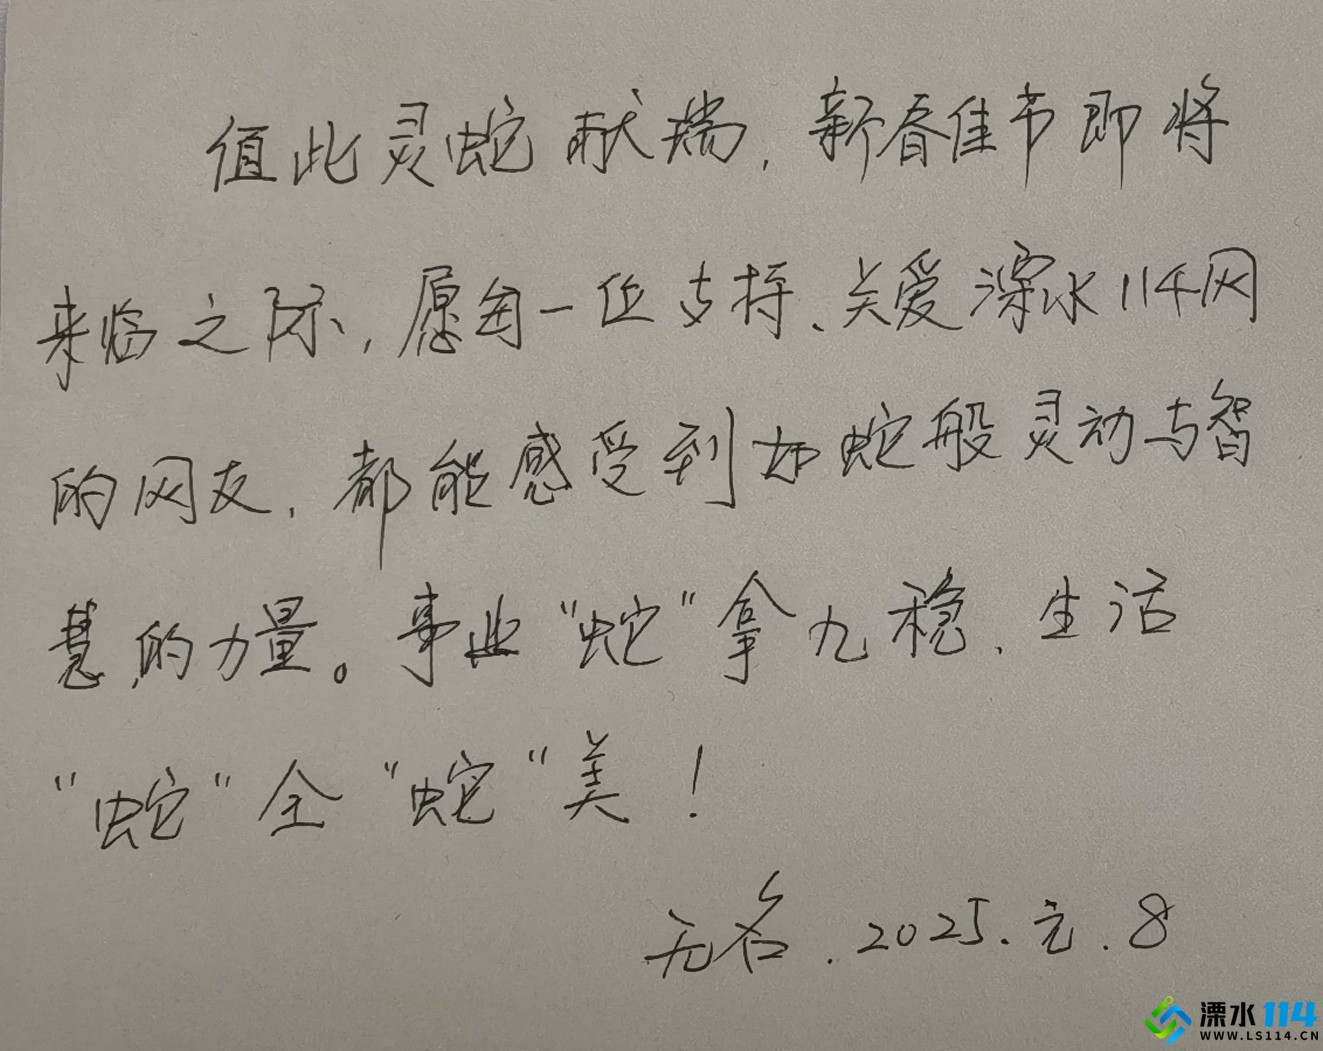 值此灵蛇献瑞，新春佳节即将
来临之际，愿每一位支持、关爱溧水114网
的网友，都能感受到如蛇般灵动与智
慧的力量。事业“蛇”拿九稳、生活
“蛇”全“蛇”美！
无名.2025.元.8
溧水114
WWW.LS114.CN